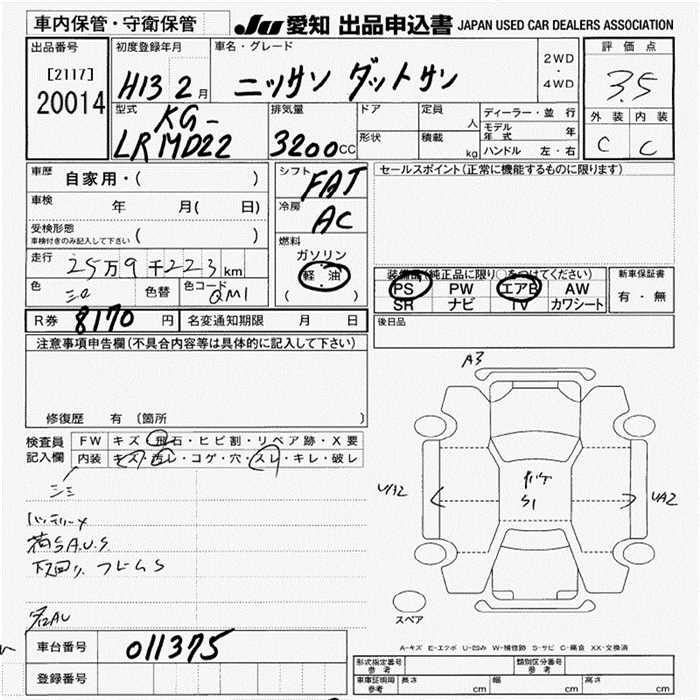 車内保管・守衛保管
JU 愛知 出品申込書 JAPAN USED CAR DEALERS ASSOCIATION
出品番号
[2117]
20014
初度登録年月
H13 2月
車名・グレード
ニッサン ダットサン
2WD
・
4WD
評価点
3.5
外装 内装
C C
型式
KG-
LRMD22
排気量
3200cc
ドア
形状
定員
人
積載
kg
ディーラー・並行
モデル年式 年
ハンドル 左・右
車歴
自家用・( )
車検
年 月( 日)
受検形態
車検付きのみ記入して下さい ( )
走行 25万9千223km
色 色替 色コード QM1
シフト
FAT
冷房
AC
燃料
ガソリン
軽油
( )
セールスポイント(正常に機能するものに限ります)
装備品(純正品に限り○をつけてください)
PS PW エアB AW
SR ナビ TV カワシート
新車保証書
有・無
R券 8170円 名変通知期限 月 日
後日品
注意事項申告欄(不具合内容等は具体的に記入して下さい)
修復歴 有 〔箇所 〕
検査員
記入欄
FW キズ・飛石・ヒビ割・リペア跡・X要
内装 キズ・汚レ・コゲ・穴・スレ・キレ・破レ
バッテリーメ
荷台A.U.S
下回り、フレームS
A3
U/A2
S1
UA2
スペア
A-キズ E-エクボ U-凹み W-補修跡 S-サビ C-腐食 XX-交換済
車台番号 011375
登録番号
形式指定番号
参考
類別区分番号
参考
車庫証明用
参考
長さ cm 幅 cm 高さ cm